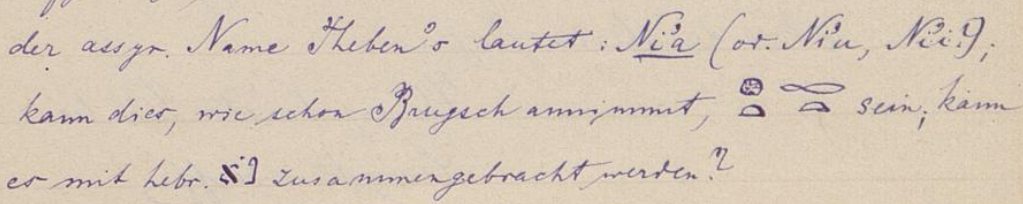 der assyr. Name Theben's lautet: Ni'a (od. Ni'u, Ni'i?);
kann dies, wie schon Brugsch annimmt, 𓊖𓏏 sein; kann
es mit hebr. נֹא zusammengebracht werden?